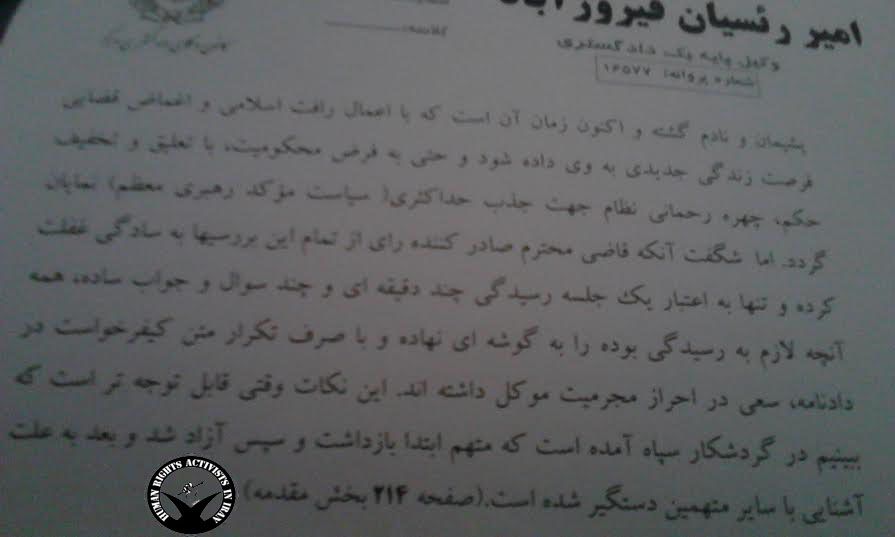 امیر رئسیان فیروز آباد
وکیل پایه یک دادگستری
شماره پروانه: ۱۶۵۷۷
کلاسه:
پشیمان و نادم گشته و اکنون زمان آن است که با اعمال رافت اسلامی و اغماض قضایی
فرصت زندگی جدیدی به وی داده شود و حتی به فرض محکومیت، با تعلیق و تخفیف
حکم، چهره رحمانی نظام جهت جذب حداکثری( سیاست مؤکد رهبری معظم) نمایان
گردد. اما شگفت آنکه قاضی محترم صادر کننده رای از تمام این بررسیها به سادگی غفلت
کرده و تنها به اعتبار یک جلسه رسیدگی چند دقیقه ای و چند سوال و جواب ساده، همه
آنچه لازم به رسیدگی بوده را به گوشه ای نهاده و با صرف تکرار متن کیفرخواست در
دادنامه، سعی در احراز مجرمیت موکل داشته اند. این نکات وقتی قابل توجه تر است که
ببینیم در گردشکار سپاه آمده است که متهم ابتدا بازداشت و سپس آزاد شد و بعد به علت
آشنایی با سایر متهمین دستگیر شده است.(صفحه ۲۱۴ بخش مقدمه)
HUMAN RIGHTS ACTIVISTS IN IRAN